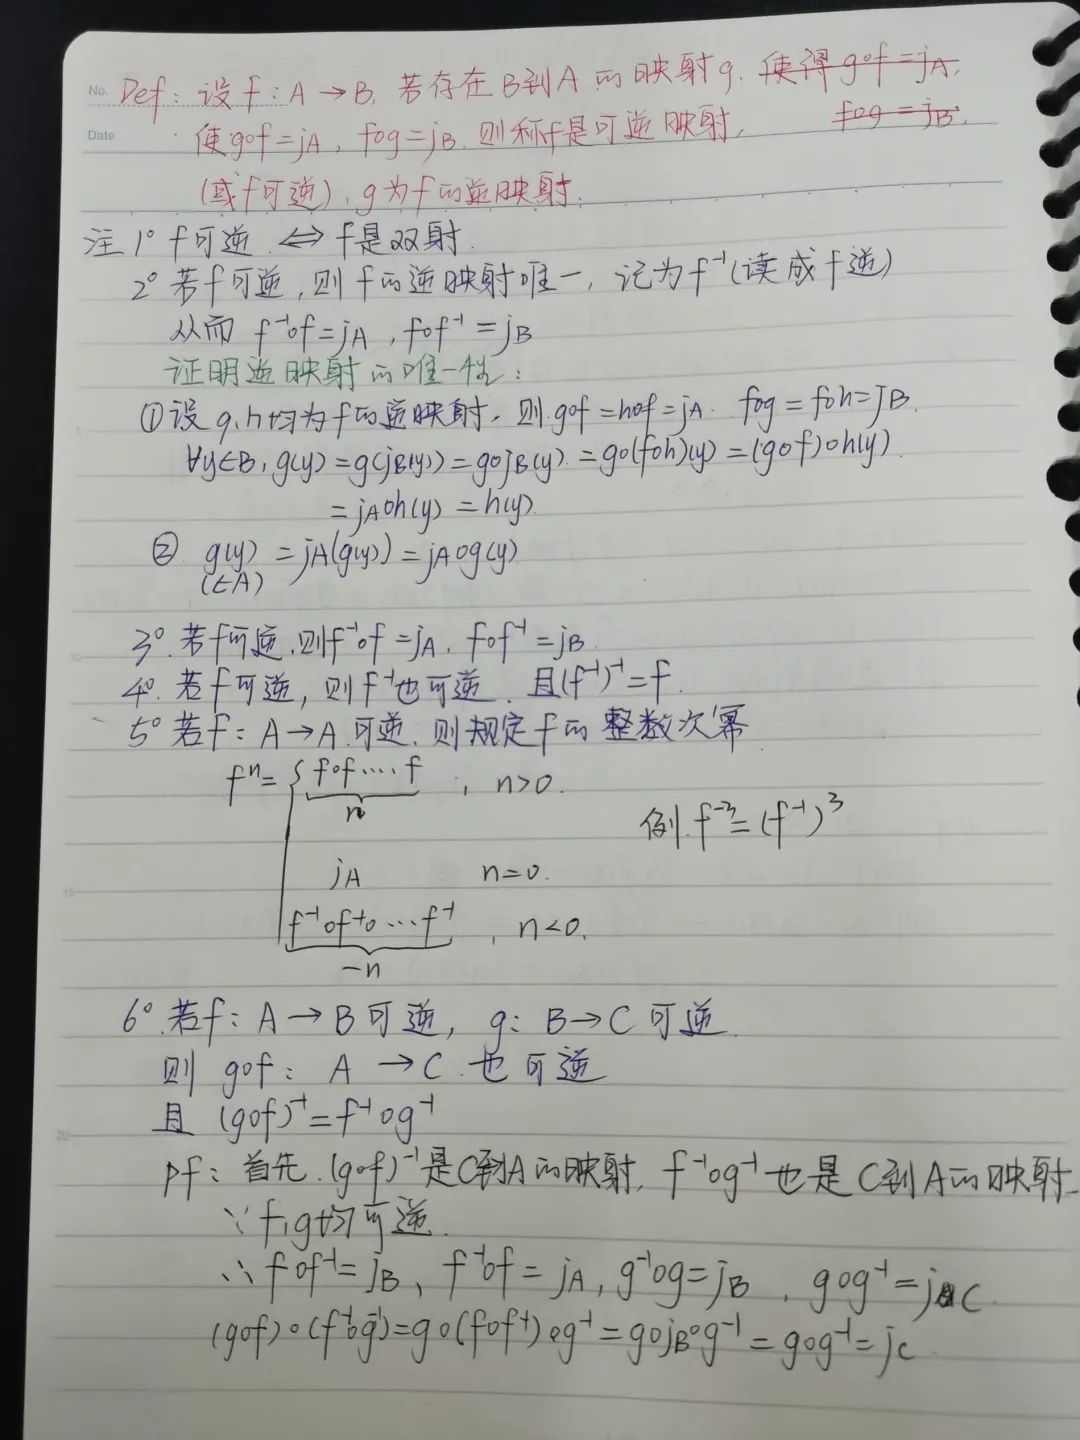 No.
Date
Def: 设f: A→B, 若存在B到A的映射g, 使得g∘f=jA,
f∘g=jB.
使g∘f=jA, f∘g=jB. 则称f是可逆映射,
(或f可逆), g为f的逆映射.
注1° f可逆 ⇔ f是双射.
2° 若f可逆, 则f的逆映射唯一, 记为f⁻¹(读成f逆)
从而 f⁻¹∘f=jA, f∘f⁻¹=jB
证明逆映射的唯一性:
①设g,h均为f的逆映射, 则g∘f=h∘f=jA. f∘g=f∘h=jB.
∀y∈B, g(y)=g(jB(y))=g∘jB(y)=g∘(f∘h)(y)=(g∘f)∘h(y)
=jA∘h(y)=h(y).
② g(y)=jA(g(y))=jA∘g(y)
(∈A)
3°. 若f可逆, 则f⁻¹∘f=jA, f∘f⁻¹=jB
4°. 若f可逆, 则f⁻¹也可逆. 且(f⁻¹)⁻¹=f.
5° 若f: A→A可逆, 则规定f的整数次幂
fⁿ= { f∘f····f , n>0.
n
例. f⁻³=(f⁻¹)³
jA n=0.
f⁻¹∘f⁻¹∘···f⁻¹ , n<0.
-n
6°. 若f: A→B可逆, g: B→C可逆.
则 g∘f: A→C. 也可逆
且 (g∘f)⁻¹=f⁻¹∘g⁻¹
pf: 首先. (g∘f)⁻¹是C到A的映射, f⁻¹∘g⁻¹也是C到A的映射.
∵ f,g均可逆.
∴ f∘f⁻¹=jB, f⁻¹∘f=jA, g⁻¹∘g=jB, g∘g⁻¹=jC
(g∘f)∘(f⁻¹∘g⁻¹)=g∘(f∘f⁻¹)∘g⁻¹=g∘jB∘g⁻¹=g∘g⁻¹=jC